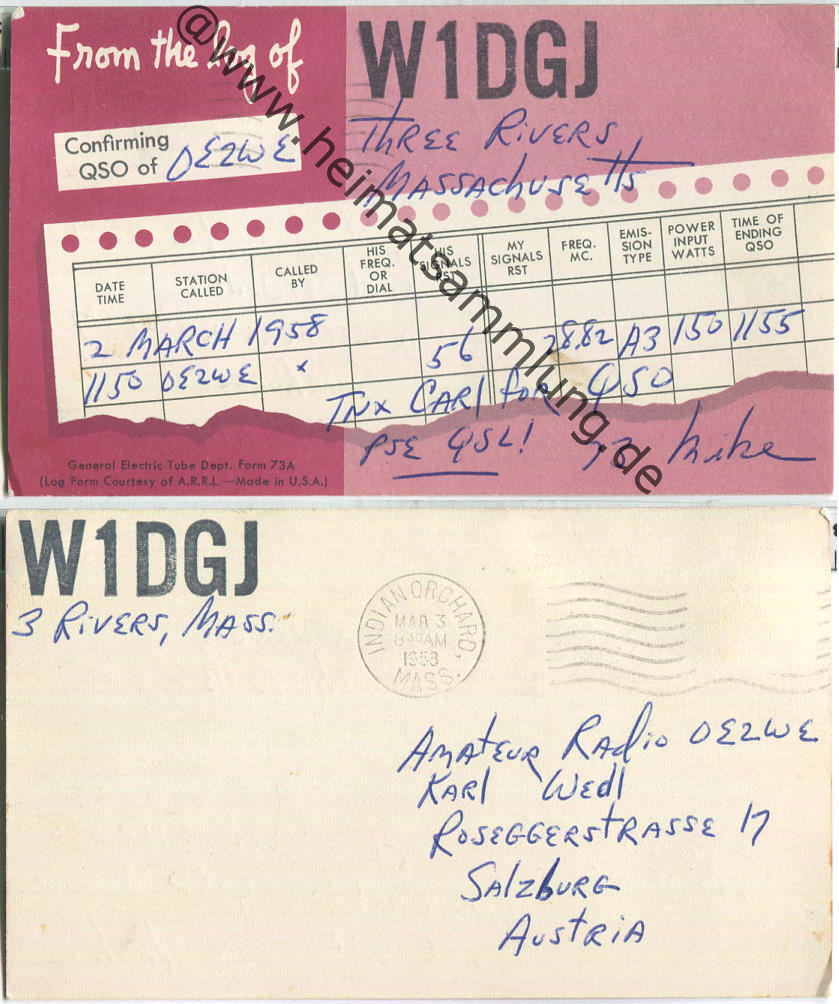 From the Log of
W1DGJ
Confirming
QSO of OE2WE
THREE RIVERS
MASSACHUSETTS
DATE TIME STATION CALLED CALLED BY HIS FREQ. OR DIAL HIS SIGNALS RST MY SIGNALS RST FREQ. MC. EMIS-SION TYPE POWER INPUT WATTS TIME OF ENDING QSO
2 MARCH 1958 56 28.82 A3 150 1155
1150 OE2WE x
TNX CARl foR QSO
PSE QSL! 73 Mike
General Electric Tube Dept. Form 73A
(Log Form Courtesy of A.R.R.L.—Made in U.S.A.)
@www.heimatsammlung.de
W1DGJ
3 RIVERS, MASS.
INDIAN ORCHARD,
MAR 3
8 30 AM
1958
MASS.
AMATEUR RADIO OE2WE
KARl WEDl
ROSEGGERSTRASSE 17
SALZBURG
AUSTRIA